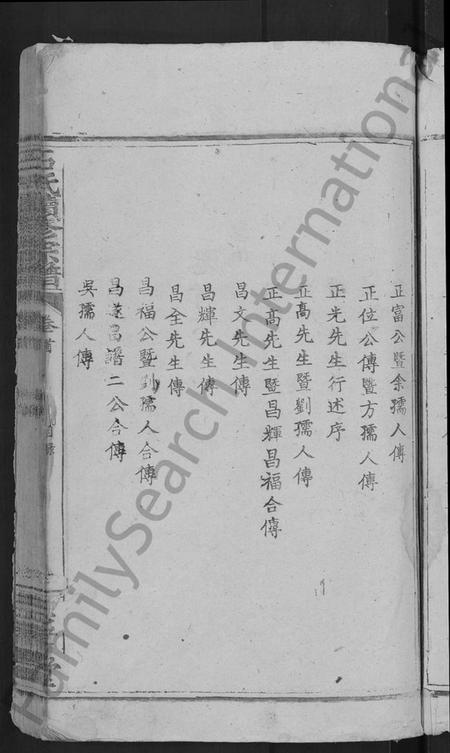 正富公暨余孺人傳
正位公傳暨方孺人傳
正光先生行述序
正高先生暨劉孺人傳
正高先生暨昌輝昌福合傳
昌文先生傳
昌輝先生傳
昌全先生傳
昌福公暨劉孺人合傳
昌 昌譜二公合傳
吳孺人傳
氏續修宗譜
卷首
FamilySearch International